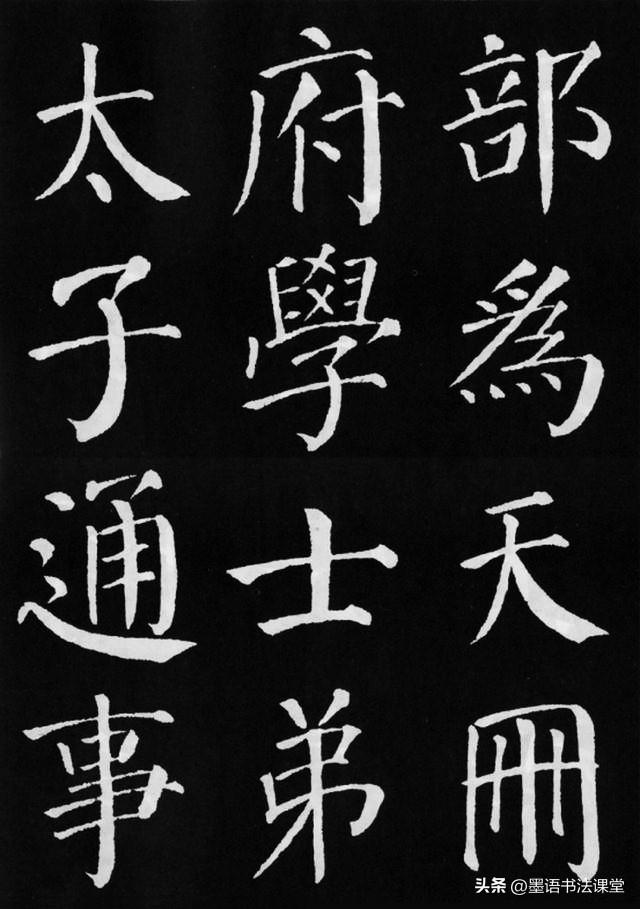 部為天冊
府學士弟
太子通事
头条 @墨语书法课堂